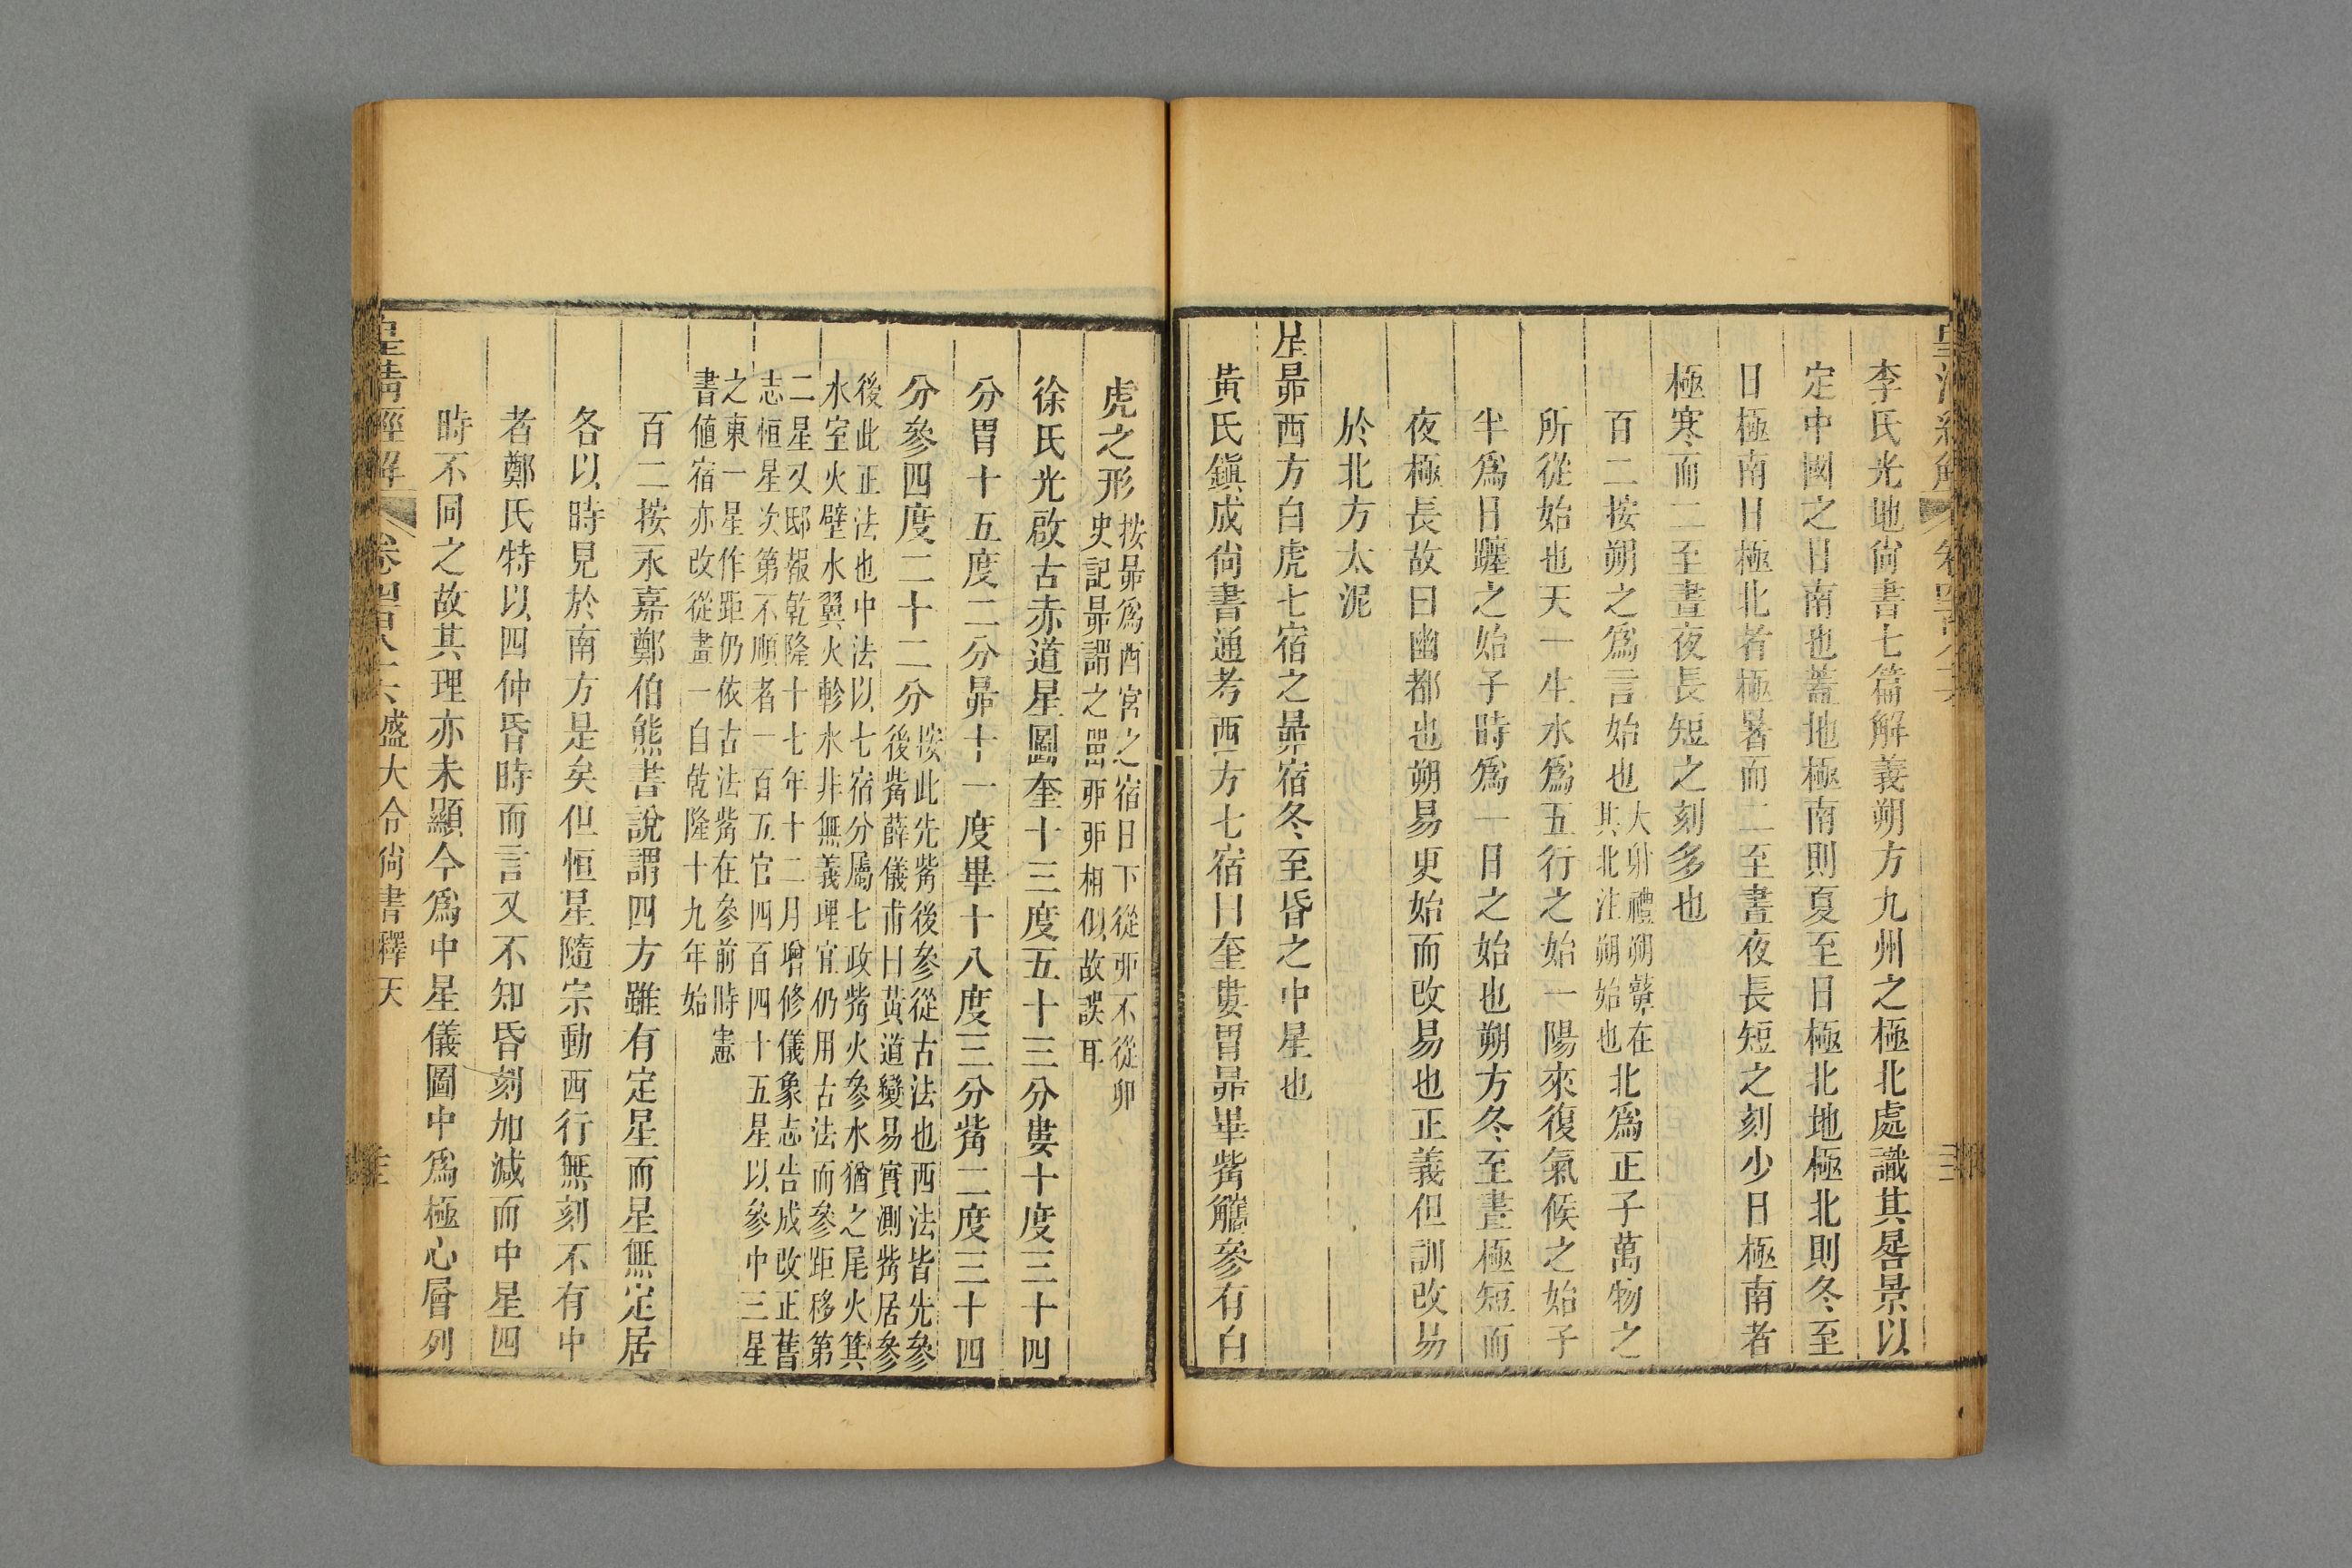 李氏光地尙書七篇解義朔方九州之極北處識其晷景以
定中國之日南也蓋地極南則夏至日極北地極北則冬至
日極南日極北者極暑而二至晝夜長短之刻少日極南者
極寒而二至晝夜長短之刻多也
百二按朔之爲言始也大射禮朔鼙在其北注朔始也北爲正子萬物之
所從始也天一生水爲五行之始一陽來復氣候之始子
半爲日躔之始子時爲一日之始也朔方冬至晝極短而
夜極長故曰幽都也朔易更始而改易也正義但訓改易
於北方太泥
星昴西方白虎七宿之昴宿冬至昏之中星也
黃氏鎭成尙書通考西方七宿曰奎婁胃昴畢觜觿參有白
虎之形按昴爲西宮之宿日下從丣不從卯史記昴謂之罶丣丣相似故誤耳
徐氏光啟古赤道星圖奎十三度五十三分婁十度三十四
分胃十五度二分昴十一度畢十八度三十四
分參四度二十二分按此先觜後參從古法也西法皆先參後觜薛儀甫曰黃道變易實測觜居參
後此正法也中法以七宿分屬七政觜火參水猶之尾火箕
水室火壁水翼火軫水非無義理官仍用古法而參距移第
二星又邸報乾隆十七年十二月增修儀象志告成改正舊
志恒星次第不順者一百五官四百四十五星以參中三星
之東一星作距仍依古法觜在參前時憲
書値宿亦改從晝一自乾隆十九年始
百二按永嘉鄭伯熊書說謂四方雖有定星而星無定居
各以時見於南方是矣但恒星隨宗動西行無刻不有中
者鄭氏特以四仲昏時而言又不知昏刻加減而中星四
時不同之故其理亦未顯今爲中星儀圖中爲極心層列
皇清經解 卷 盛大令尙書釋天